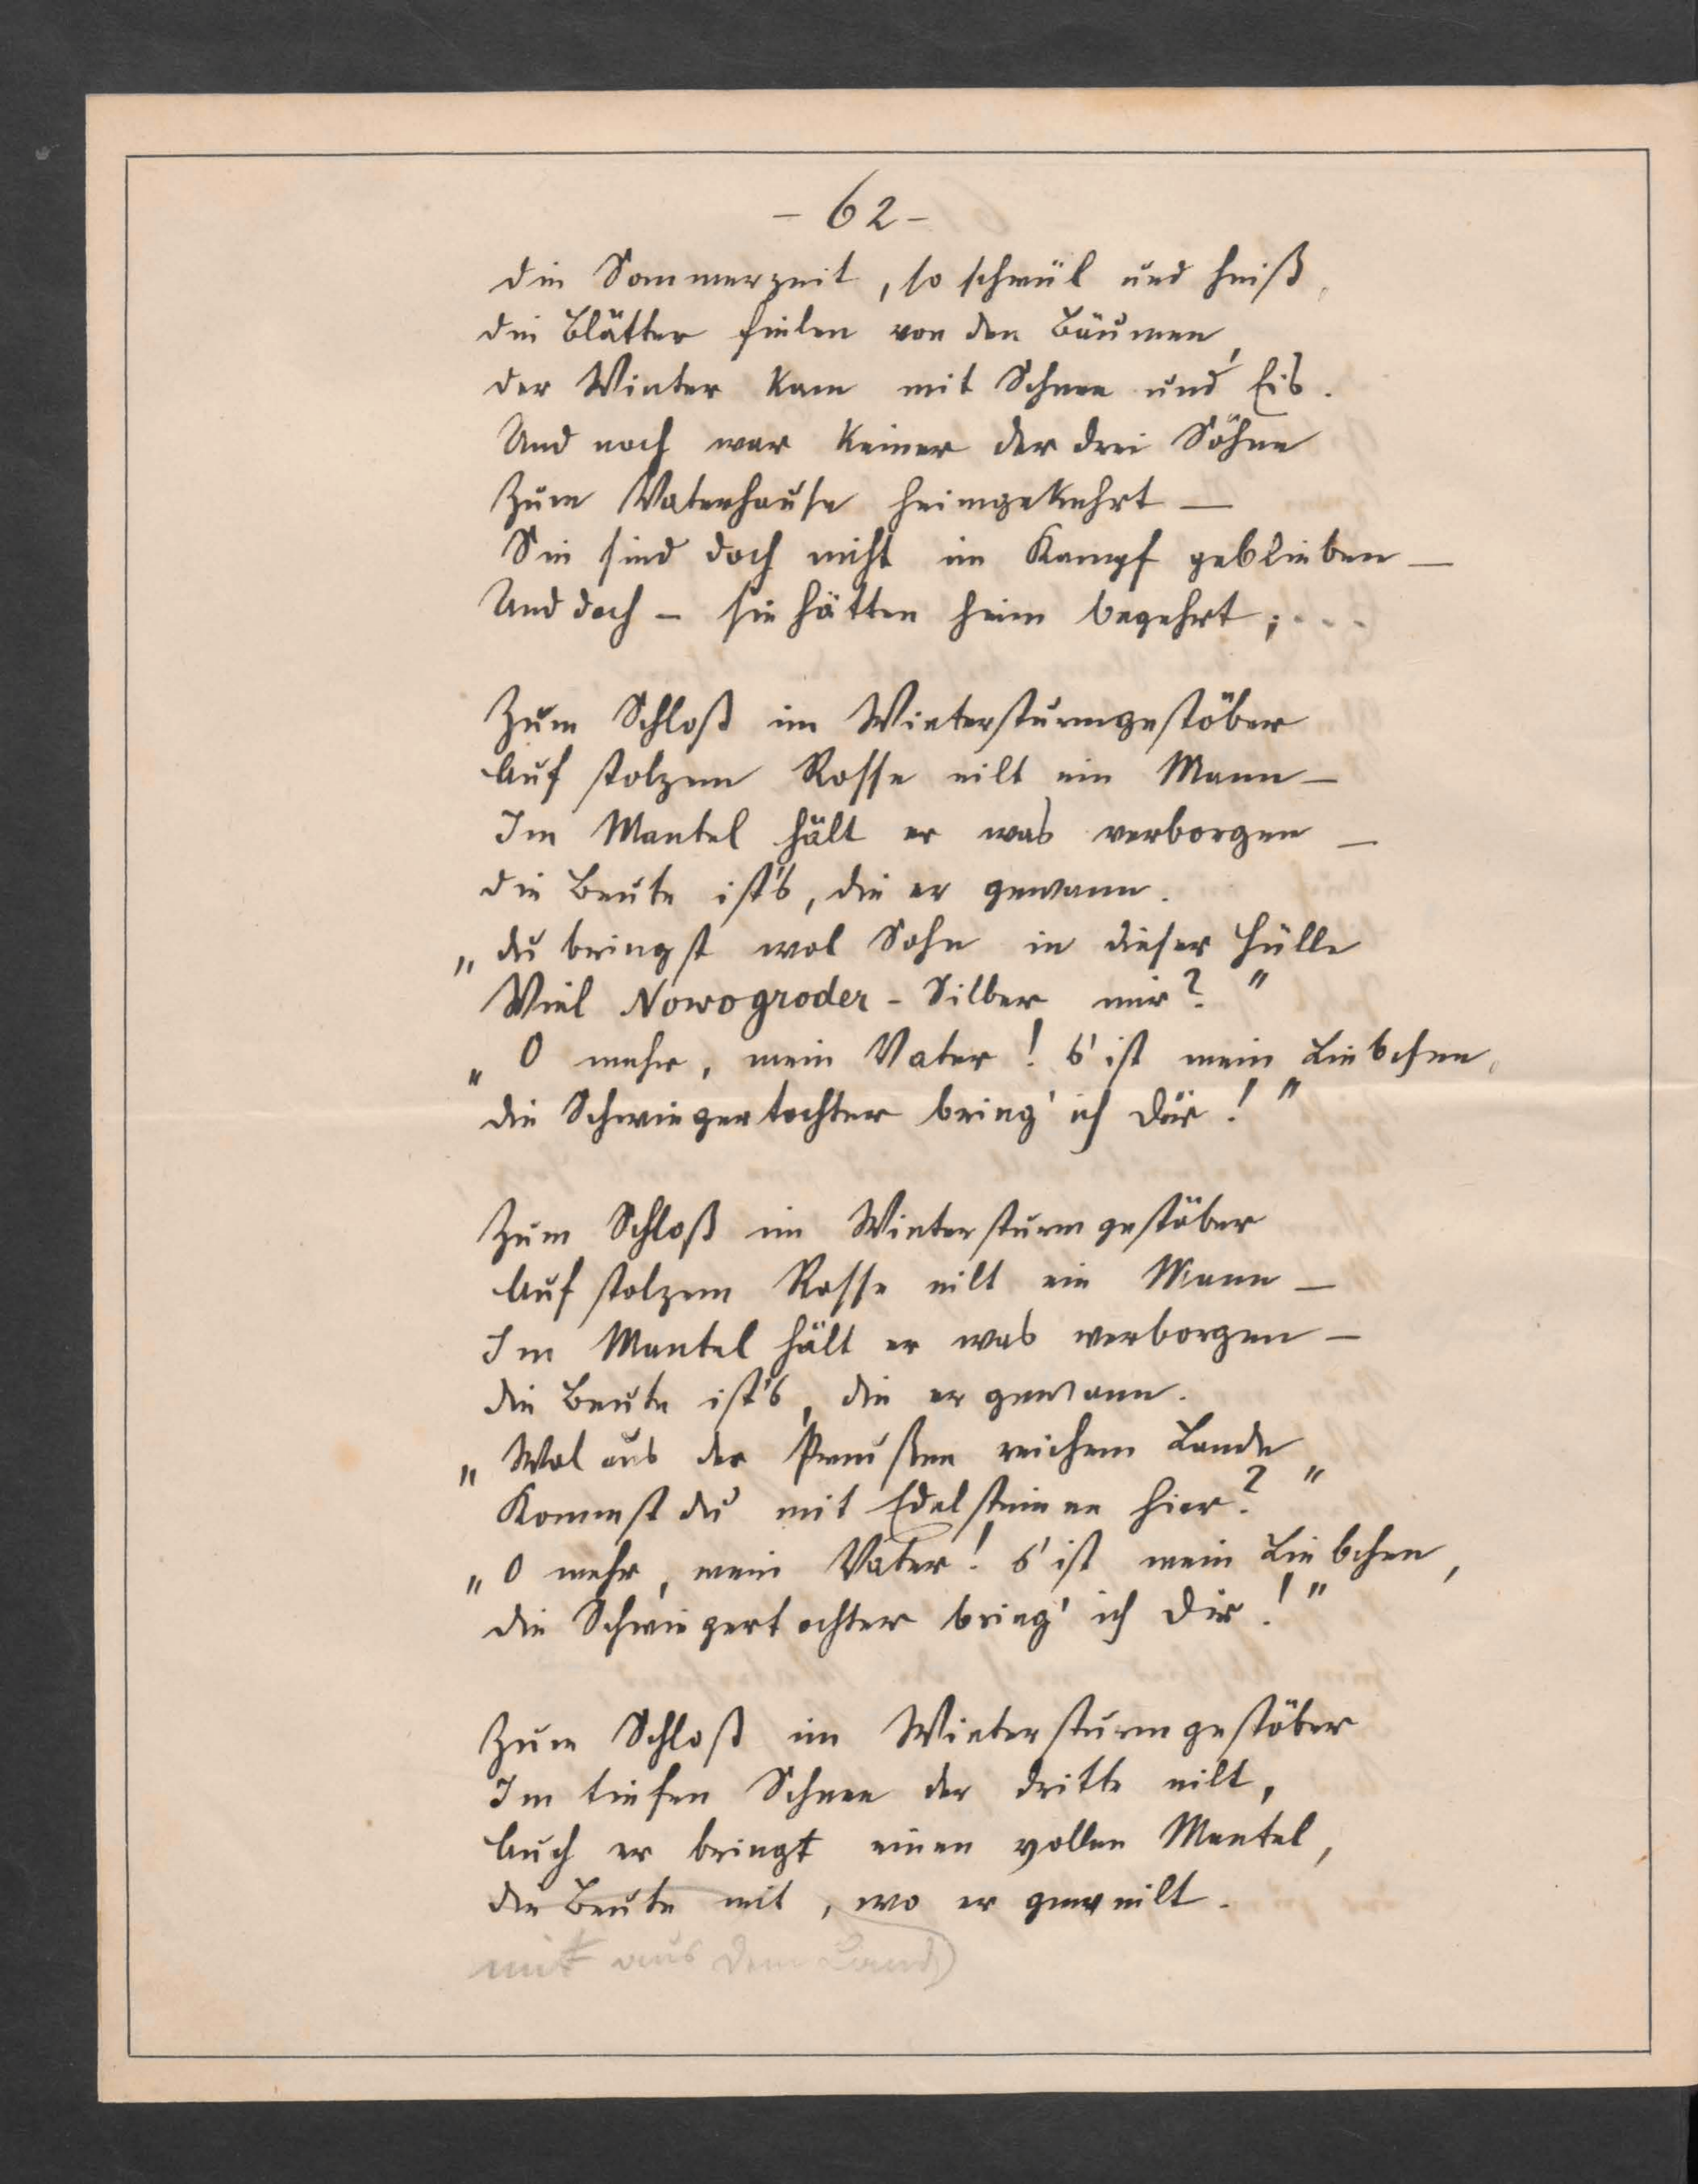 - 62 -
die Sommerzeit, so schwül und heiß,
die Blätter fielen von den Bäumen,
der Winter kam mit Schnee und Eis.
Und noch war keiner der drei Söhne
Zum Vaterhause heimgekehrt —
Sie sind doch nicht im Kampf geblieben —
Und doch — sie hätten heim begehrt; ...
Zum Schloß im Wintersturmgestöber
Auf stolzem Rosse eilt ein Mann —
Im Mantel hält er was verborgen —
die Beute ist's, die er gewann.
„du bringst wol Sohn in dieser Hülle
Viel Nowogroder - Silber mir?"
„O mehr, mein Vater! s' ist mein Liebchen,
die Schwiegertochter bring' ich Dir!"
Zum Schloß im Wintersturmgestöber
Auf stolzem Rosse eilt ein Mann —
Im Mantel hält er was verborgen —
die Beute ist's, die er gewann.
„Wol aus der Preußen reichem Lande
Kommst du mit Edelsteinen hier?"
„O mehr, mein Vater! s' ist mein Liebchen,
die Schwiegertochter bring' ich Dir!"
Zum Schloß im Wintersturmgestöber
Im tiefen Schnee der dritte eilt,
Auch er bringt einen vollen Mantel,
die Beute mit, wo er geweilt.
mit aus dem Land)